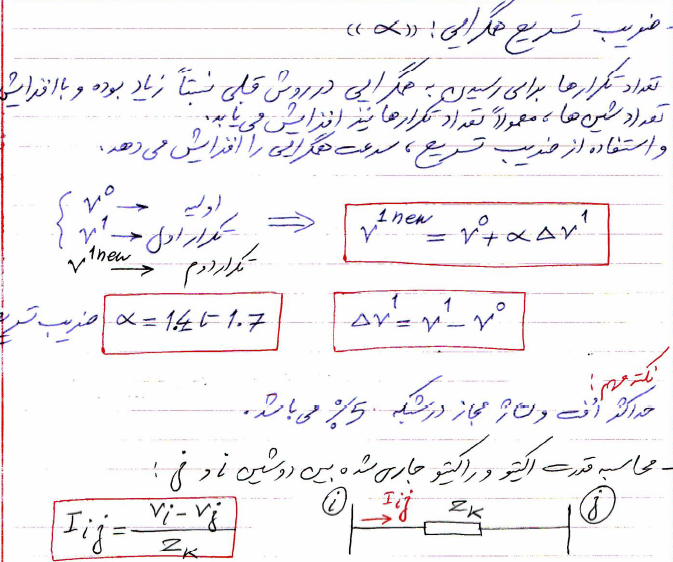 - ضریب تسریع همگرایی: «α»
تعداد تکرارها برای رسیدن به همگرایی در روش قبلی نسبتاً زیاد بوده و با افزایش
تعداد شین ها، معمولاً تعداد تکرارها نیز افزایش می یابد.
و استفاده از ضریب تسریع، سرعت همگرایی را افزایش می دهد.
V⁰ → اولیه
V¹ → تکرار اول
V^{1new} → تکرار دوم
⇒ V^{1new} = V⁰ + αΔV¹
ضریب تسریع α = 1.4 تا 1.7
ΔV¹ = V¹ - V⁰
نکته مهم:
حداکثر اُفت ولتاژ مجاز در شبکه 5% می باشد.
- محاسبه قدرت اکتیو و راکتیو جاری شده بین دو شین i و j :
I_{ij} = (V_i - V_j) / Z_K
i I_{ij} Z_K j